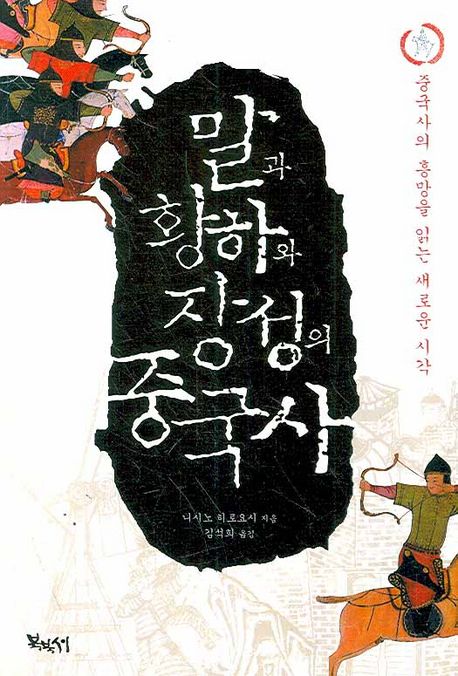 말과
황하와
장성의
중국사
중국사의 흥망을 읽는 새로운 시각
니시노 히로요시 지음
김석희 옮김
북북서